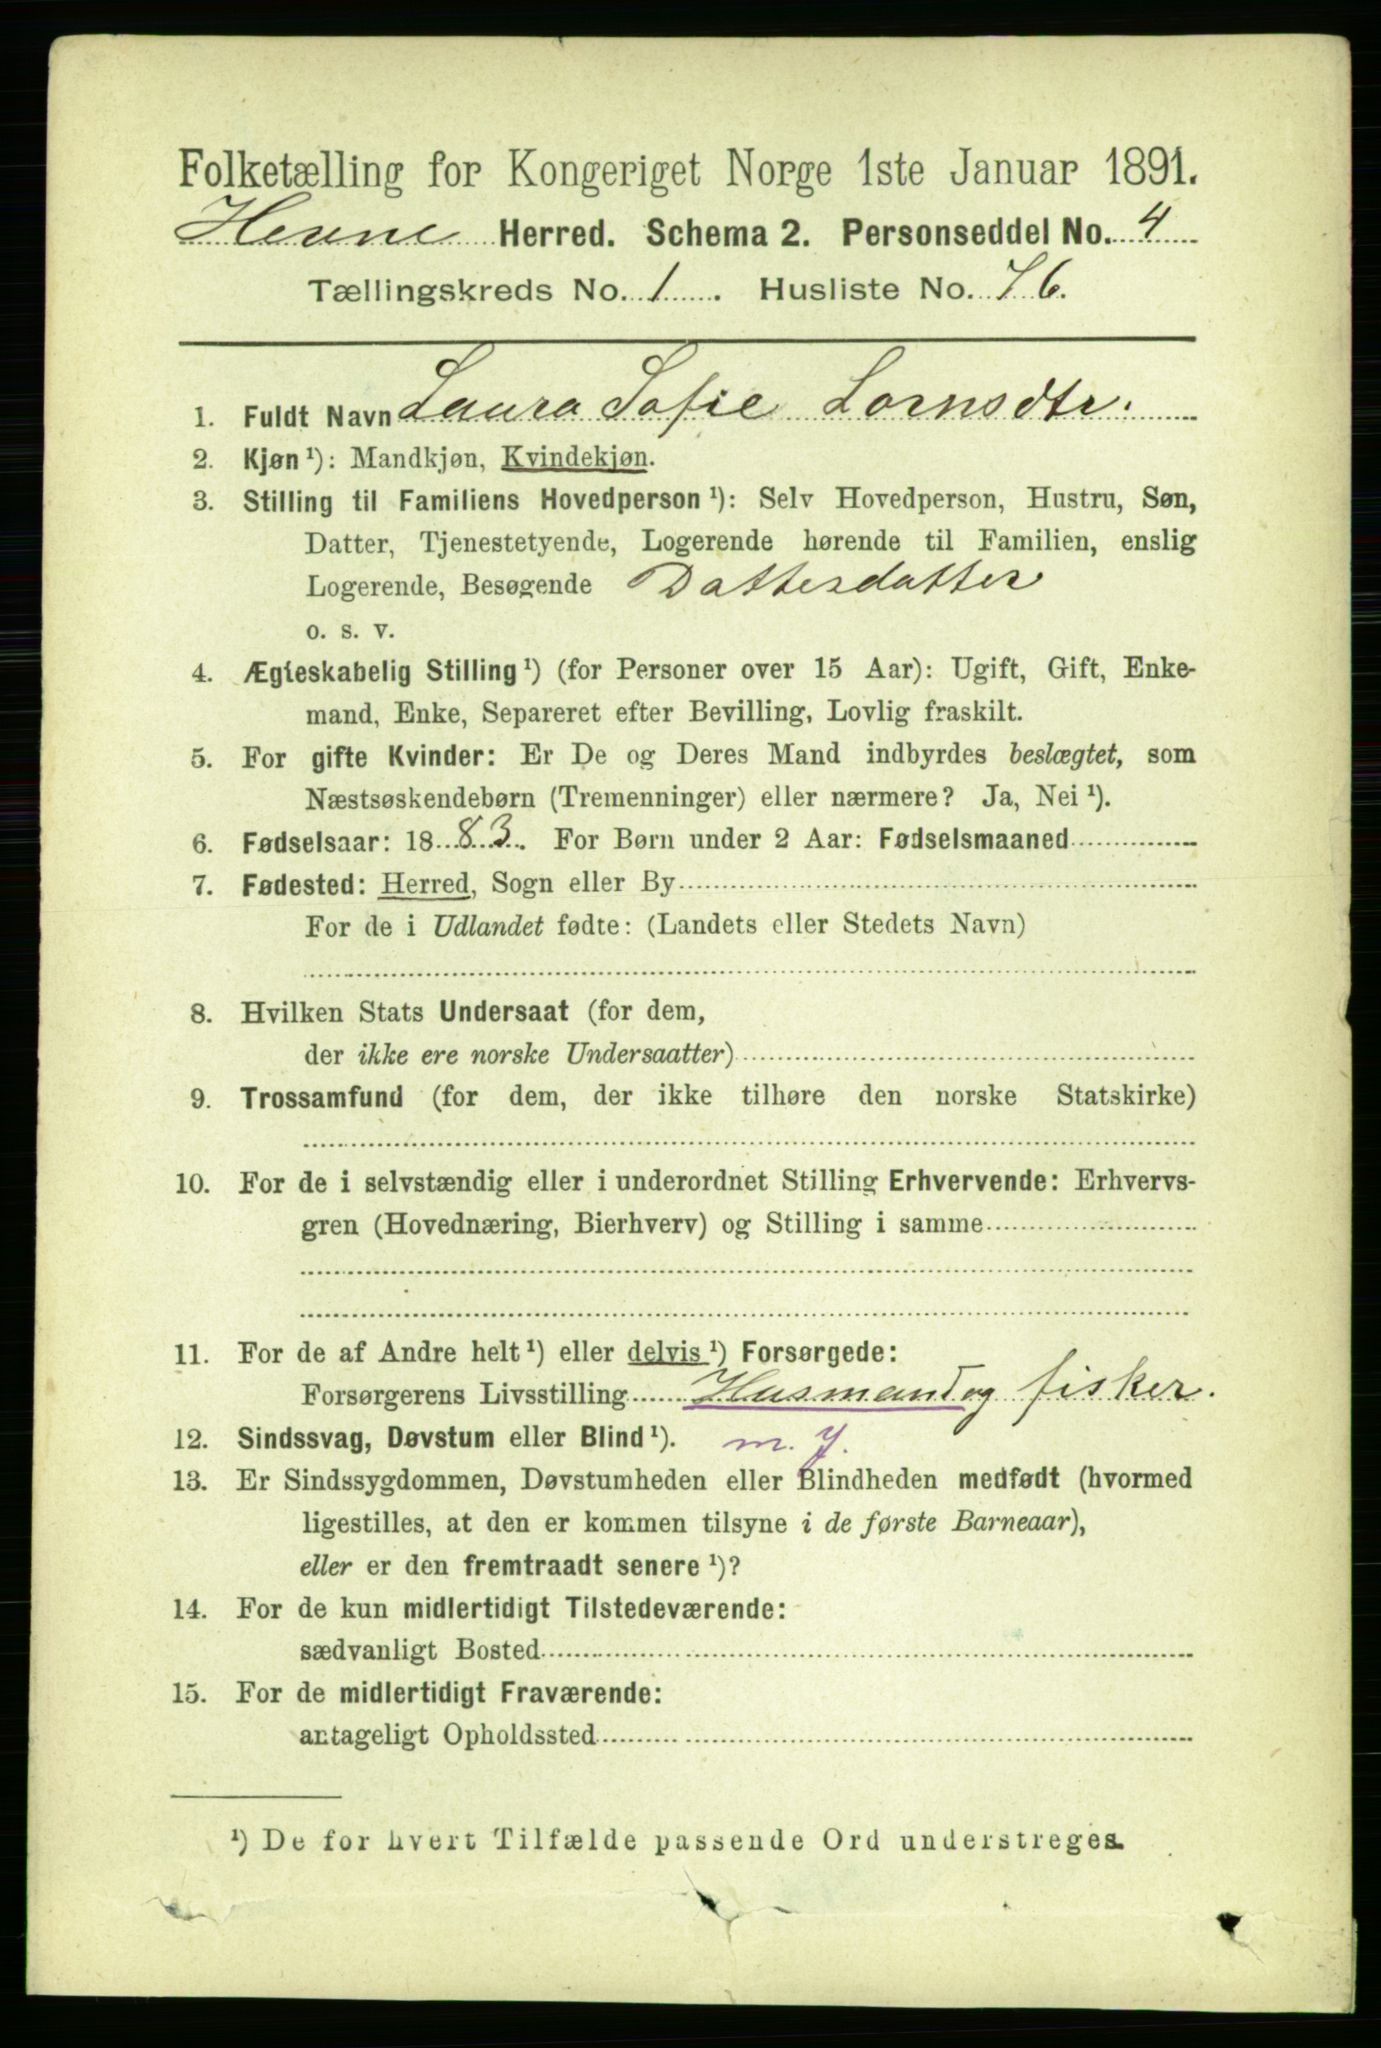 Folketælling for Kongeriget Norge 1ste Januar 1891.
Hevne Herred. Schema 2. Personseddel No. 4
Tællingskreds No. 1. Husliste No. 76.
1. Fuldt Navn Laura Sofie Lornsdtr.
2. Kjøn ¹): Mandkjøn, Kvindekjøn.
3. Stilling til Familiens Hovedperson ¹): Selv Hovedperson, Hustru, Søn,
Datter, Tjenestetyende, Logerende hørende til Familien, enslig
Logerende, Besøgende Datterdatter
o. s. v.
4. Ægteskabelig Stilling ¹) (for Personer over 15 Aar): Ugift, Gift, Enke-
mand, Enke, Separeret efter Bevilling, Lovlig fraskilt.
5. For gifte Kvinder: Er De og Deres Mand indbyrdes beslægtet, som
Næstsøskendebørn (Tremenninger) eller nærmere? Ja, Nei ¹).
6. Fødselsaar: 1883. For Børn under 2 Aar: Fødselsmaaned
7. Fødested: Herred, Sogn eller By
For de i Udlandet fødte: (Landets eller Stedets Navn)
8. Hvilken Stats Undersaat (for dem,
der ikke ere norske Undersaatter)
9. Trossamfund (for dem, der ikke tilhøre den norske Statskirke)
10. For de i selvstændig eller i underordnet Stilling Erhvervende: Erhvervs-
gren (Hovednæring, Bierhverv) og Stilling i samme
11. For de af Andre helt ¹) eller delvis ¹) Forsørgede:
Forsørgerens Livsstilling Husmand og fisker.
12. Sindssvag, Døvstum eller Blind ¹). m. J.
13. Er Sindssygdommen, Døvstumheden eller Blindheden medfødt (hvormed
ligestilles, at den er kommen tilsyne i de første Barneaar),
eller er den fremtraadt senere ¹)?
14. For de kun midlertidigt Tilstedeværende:
sædvanligt Bosted
15. For de midlertidigt Fraværende:
antageligt Opholdssted
¹) De for hvert Tilfælde passende Ord understreges.